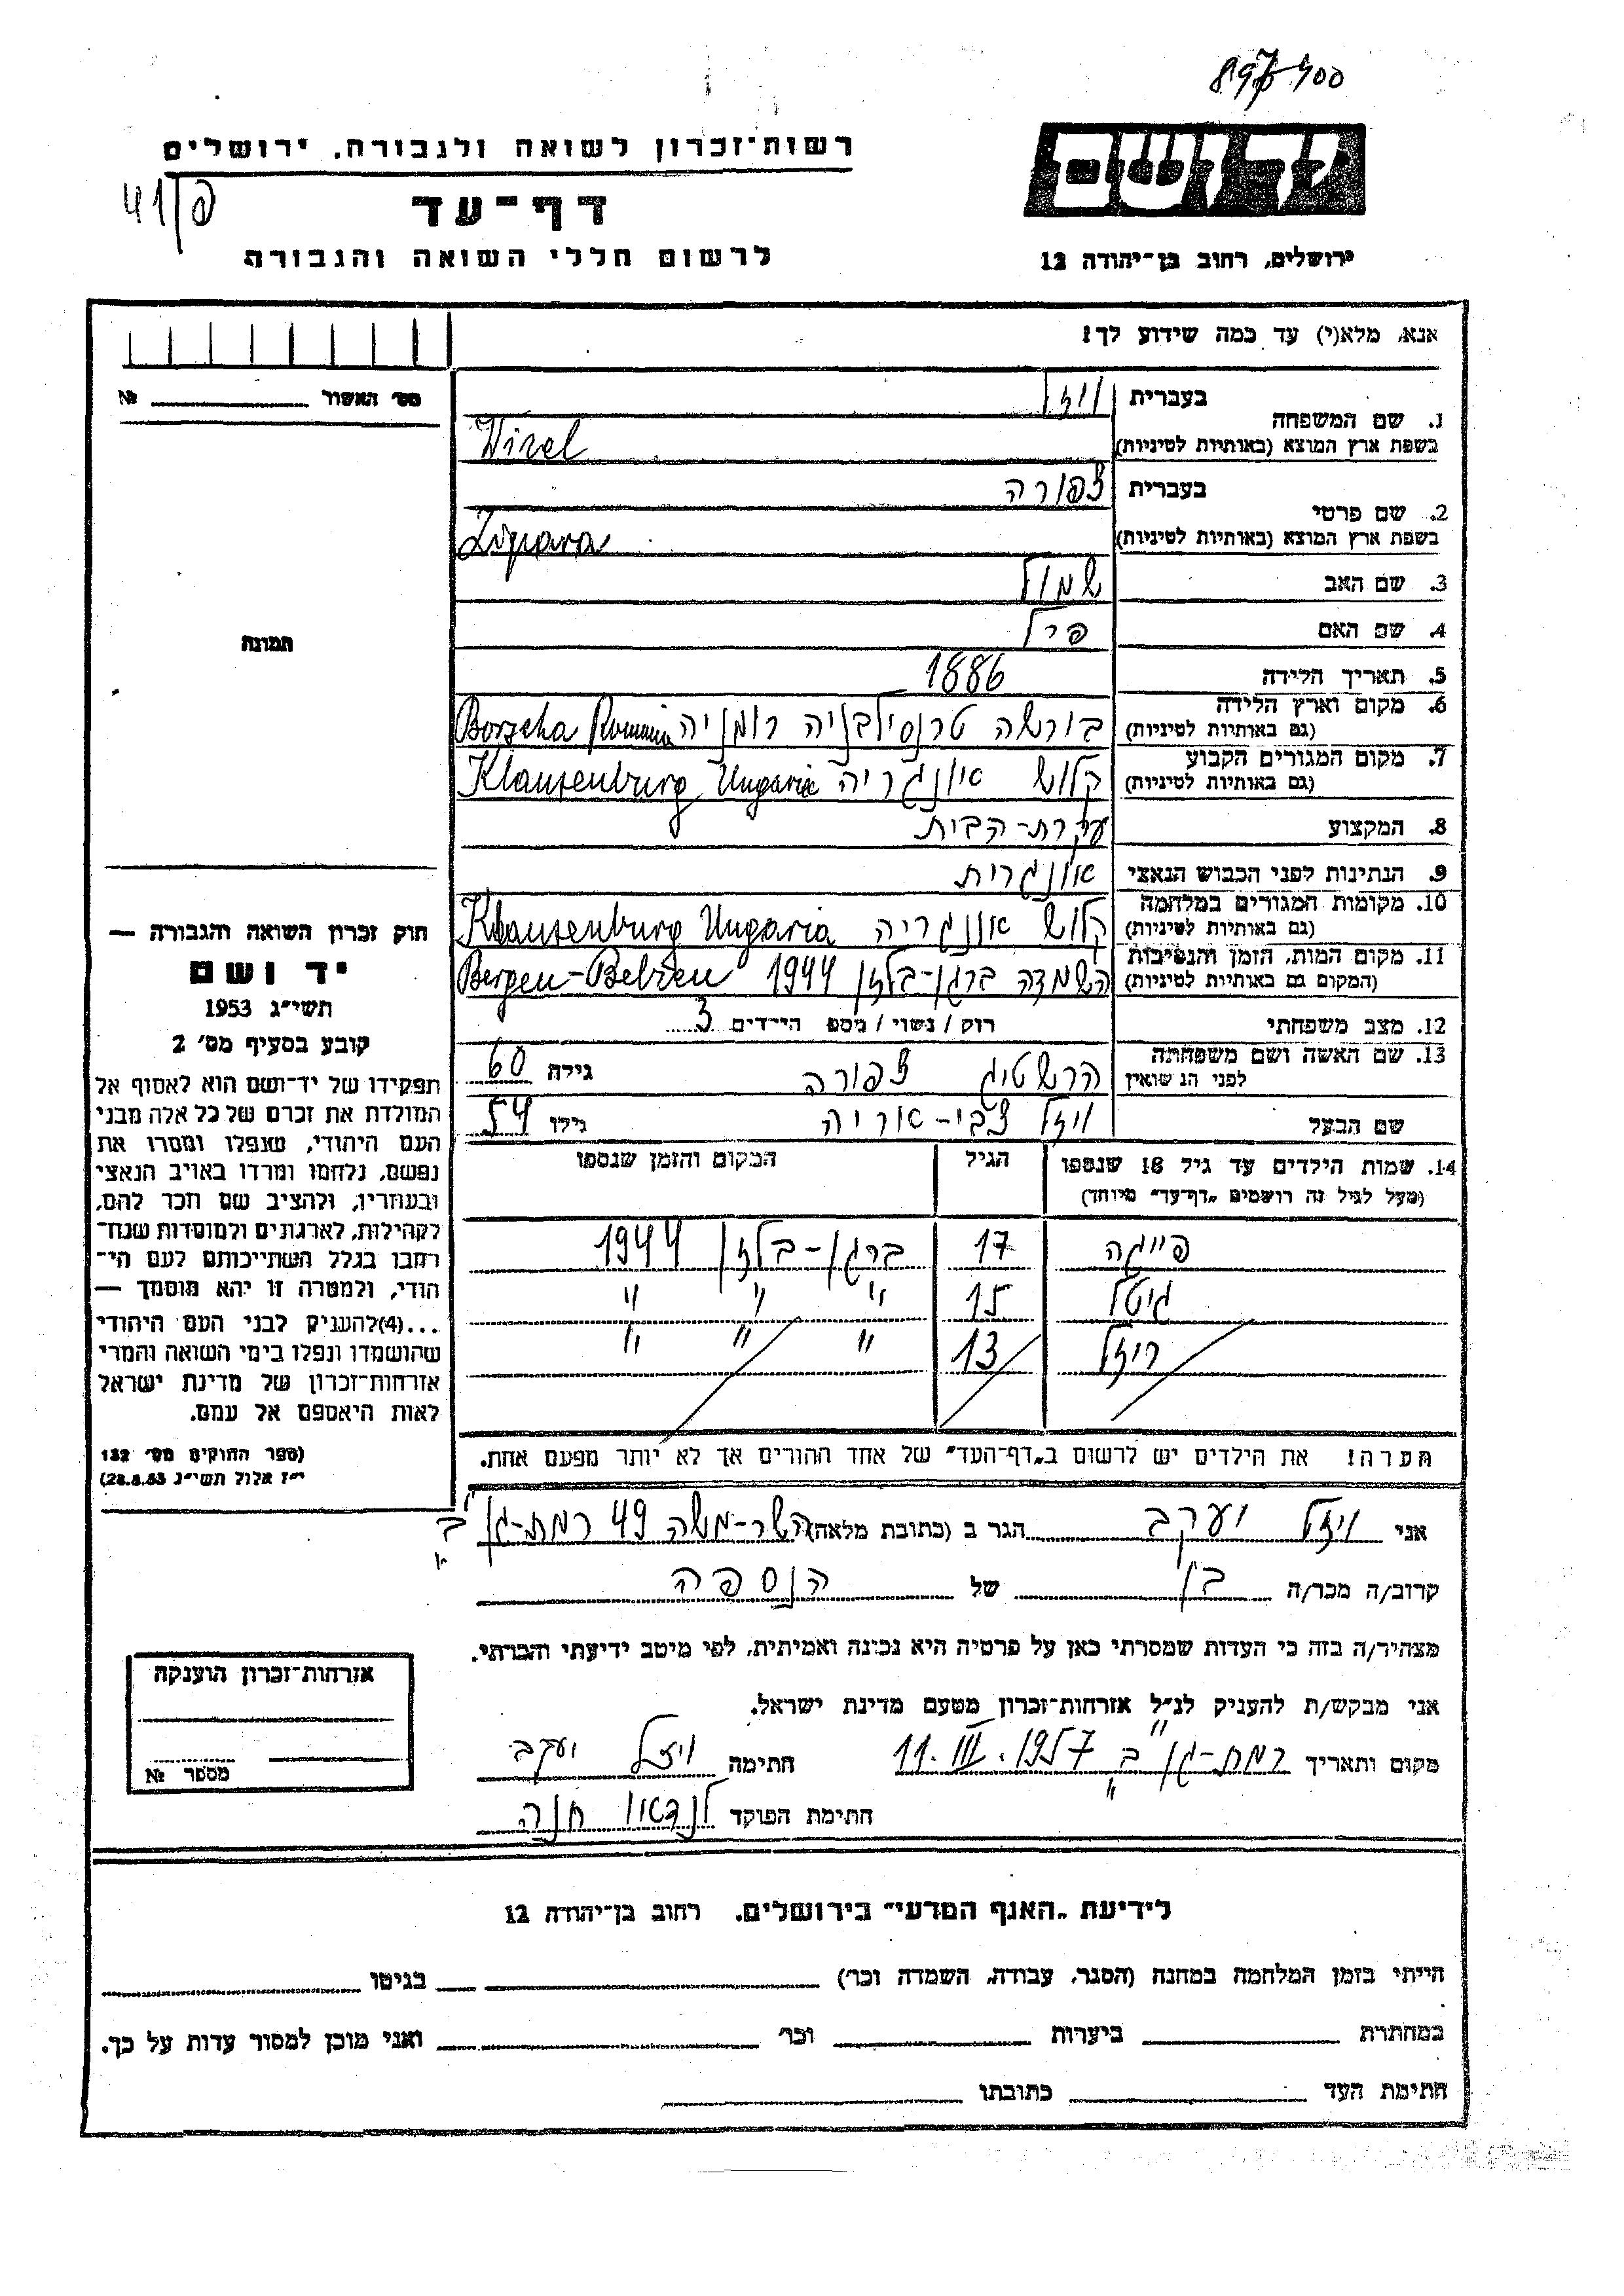 897400
רשות־זכרון לשואה ולגבורה, ירושלים
יד ושם
פ/41
דף־עד
לרשום חללי השואה והגבורה
ירושלים, רחוב בן־יהודה 12
אנא, מלא(י) עד כמה שידוע לך!
מס׳ האשור № 
1. שם המשפחה
בעברית ויזל
בשפת ארץ המוצא (באותיות לטיניות) Wizel
2. שם פרטי
בעברית צפורה
בשפת ארץ המוצא (באותיות לטיניות) Zipora
3. שם האב שמואל
4. שם האם פרל
תמונה
5. תאריך הלידה 1886
6. מקום וארץ הלידה
(גם באותיות לטיניות) בורשה טרנסילבניה רומניה Borscha
7. מקום המגורים הקבוע
(גם באותיות לטיניות) קלוש אונגריה Klausenburg Ungaria
8. המקצוע עקרת-הבית
9. הנתינות לפני הכבוש הנאצי אונגרית
10. מקומות המגורים במלחמה
(גם באותיות לטיניות) קלוש אונגריה Klausenburg Ungaria
11. מקום המות, הזמן והנסיבות
(המקום גם באותיות לטיניות) השמדה ברגן-בלזן 1944 Bergen-Belzen
12. מצב משפחתי רוק / נשוי / מספ הילדים 3
13. שם האשה ושם משפחתה
לפני הנשואין הרשטיג צפורה גילה 60
שם הבעל ויזל צבי-אריה גילו 54
14. שמות הילדים עד גיל 18 שנספו
(מעל לגיל זה רושמים „דף־עד״ מיוחד)
הגיל
המקום והזמן שנספו
פייגה 17 ברגן-בלזן 1944
גיטל 15 " " "
רייזל 13 " " "
הערה! את הילדים יש לרשום ב„דף־העד״ של אחד ההורים אך לא יותר מפעם אחת.
חוק זכרון השואה והגבורה —
יד ושם
תשי״ג 1953
קובע בסעיף מס׳ 2
תפקידו של יד־ושם הוא לאסוף אל
המולדת את זכרם של כל אלה מבני
העם היהודי, שנפלו ומסרו את
נפשם, נלחמו ומרדו באויב הנאצי
ובעוזריו, ולהציב שם וזכר להם,
לקהילות, לארגונים ולמוסדות שנח־
רבו בגלל השתייכותם לעם הי־
הודי, ולמטרה זו יהא מוסמך —
...(4)להעניק לבני העם היהודי
שהושמדו ונפלו בימי השואה והמרי
אזרחות־זכרון של מדינת ישראל
לאות היאספם אל עמם.
(ספר החוקים מס׳ 132
י״ז אלול תשי״ג 28.8.53)
אני ויזל יעקב הגר ב (כתובת מלאה) השר-משה 49 רמת-גן ב
קרוב/ה מכר/ה בן של הנספה
מצהיר/ה בזה כי העדות שמסרתי כאן על פרטיה היא נכונה ואמיתית, לפי מיטב ידיעתי והכרתי.
אני מבקש/ת להעניק לנ״ל אזרחות־זכרון מטעם מדינת ישראל.
מקום ותאריך רמת-גן "ב" 11.III.1957 חתימה ויזל יעקב
חתימת הפוקד לנדאו חנה
אזרחות־זכרון הוענקה
מספר №
לידיעת „האגף המדעי״ בירושלים, רחוב בן־יהודה 12
הייתי בזמן המלחמה במחנה (הסגר, עבודה, השמדה וכו׳) בגיטו
במחתרת ביערות וכו׳ ואני מוכן למסור עדות על כך.
חתימת העד כתובתו